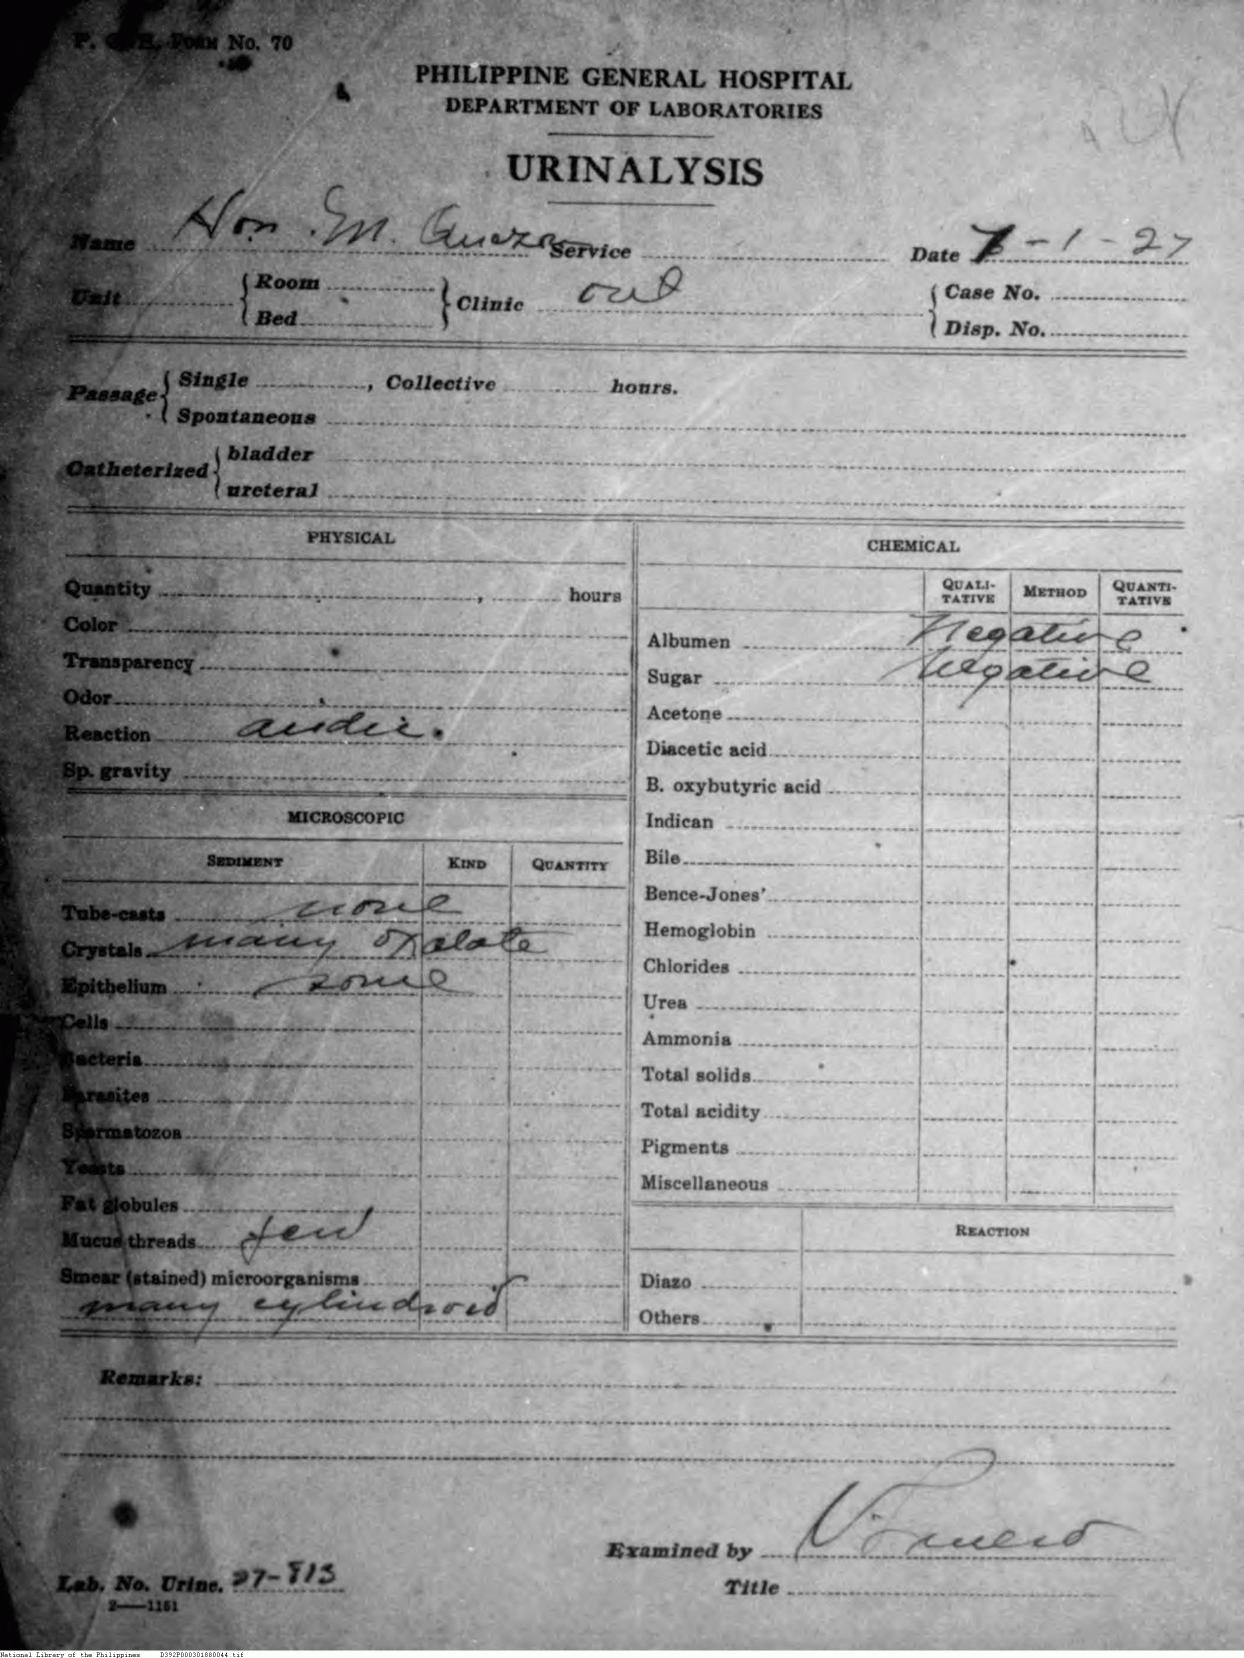 P. G. H. Form No. 70
PHILIPPINE GENERAL HOSPITAL
DEPARTMENT OF LABORATORIES
URINALYSIS
Name Hon. M. Quezon Service Date -1-27
Unit Room Bed Clinic out Case No. Disp. No.
Passage Single , Collective hours.
Spontaneous
Catheterized bladder
ureteral
PHYSICAL
Quantity , hours
Color
Transparency
Odor
Reaction acidic.
Sp. gravity
MICROSCOPIC
SEDIMENT KIND QUANTITY
Tube-casts none
Crystals many oxalate
Epithelium some
Cells
Bacteria
Parasites
Spermatozoa
Yeasts
Fat globules
Mucus threads few
Smear (stained) microorganisms
many cylindroid
CHEMICAL
QUALI-TATIVE METHOD QUANTI-TATIVE
Albumen Negative
Sugar Negative
Acetone
Diacetic acid
B. oxybutyric acid
Indican
Bile
Bence-Jones'
Hemoglobin
Chlorides
Urea
Ammonia
Total solids
Total acidity
Pigments
Miscellaneous
REACTION
Diazo
Others
Remarks:
Examined by
Title
Lab. No. Urine. 27-813
2—1151
National Library of the Philippines D392P000301880044.tif